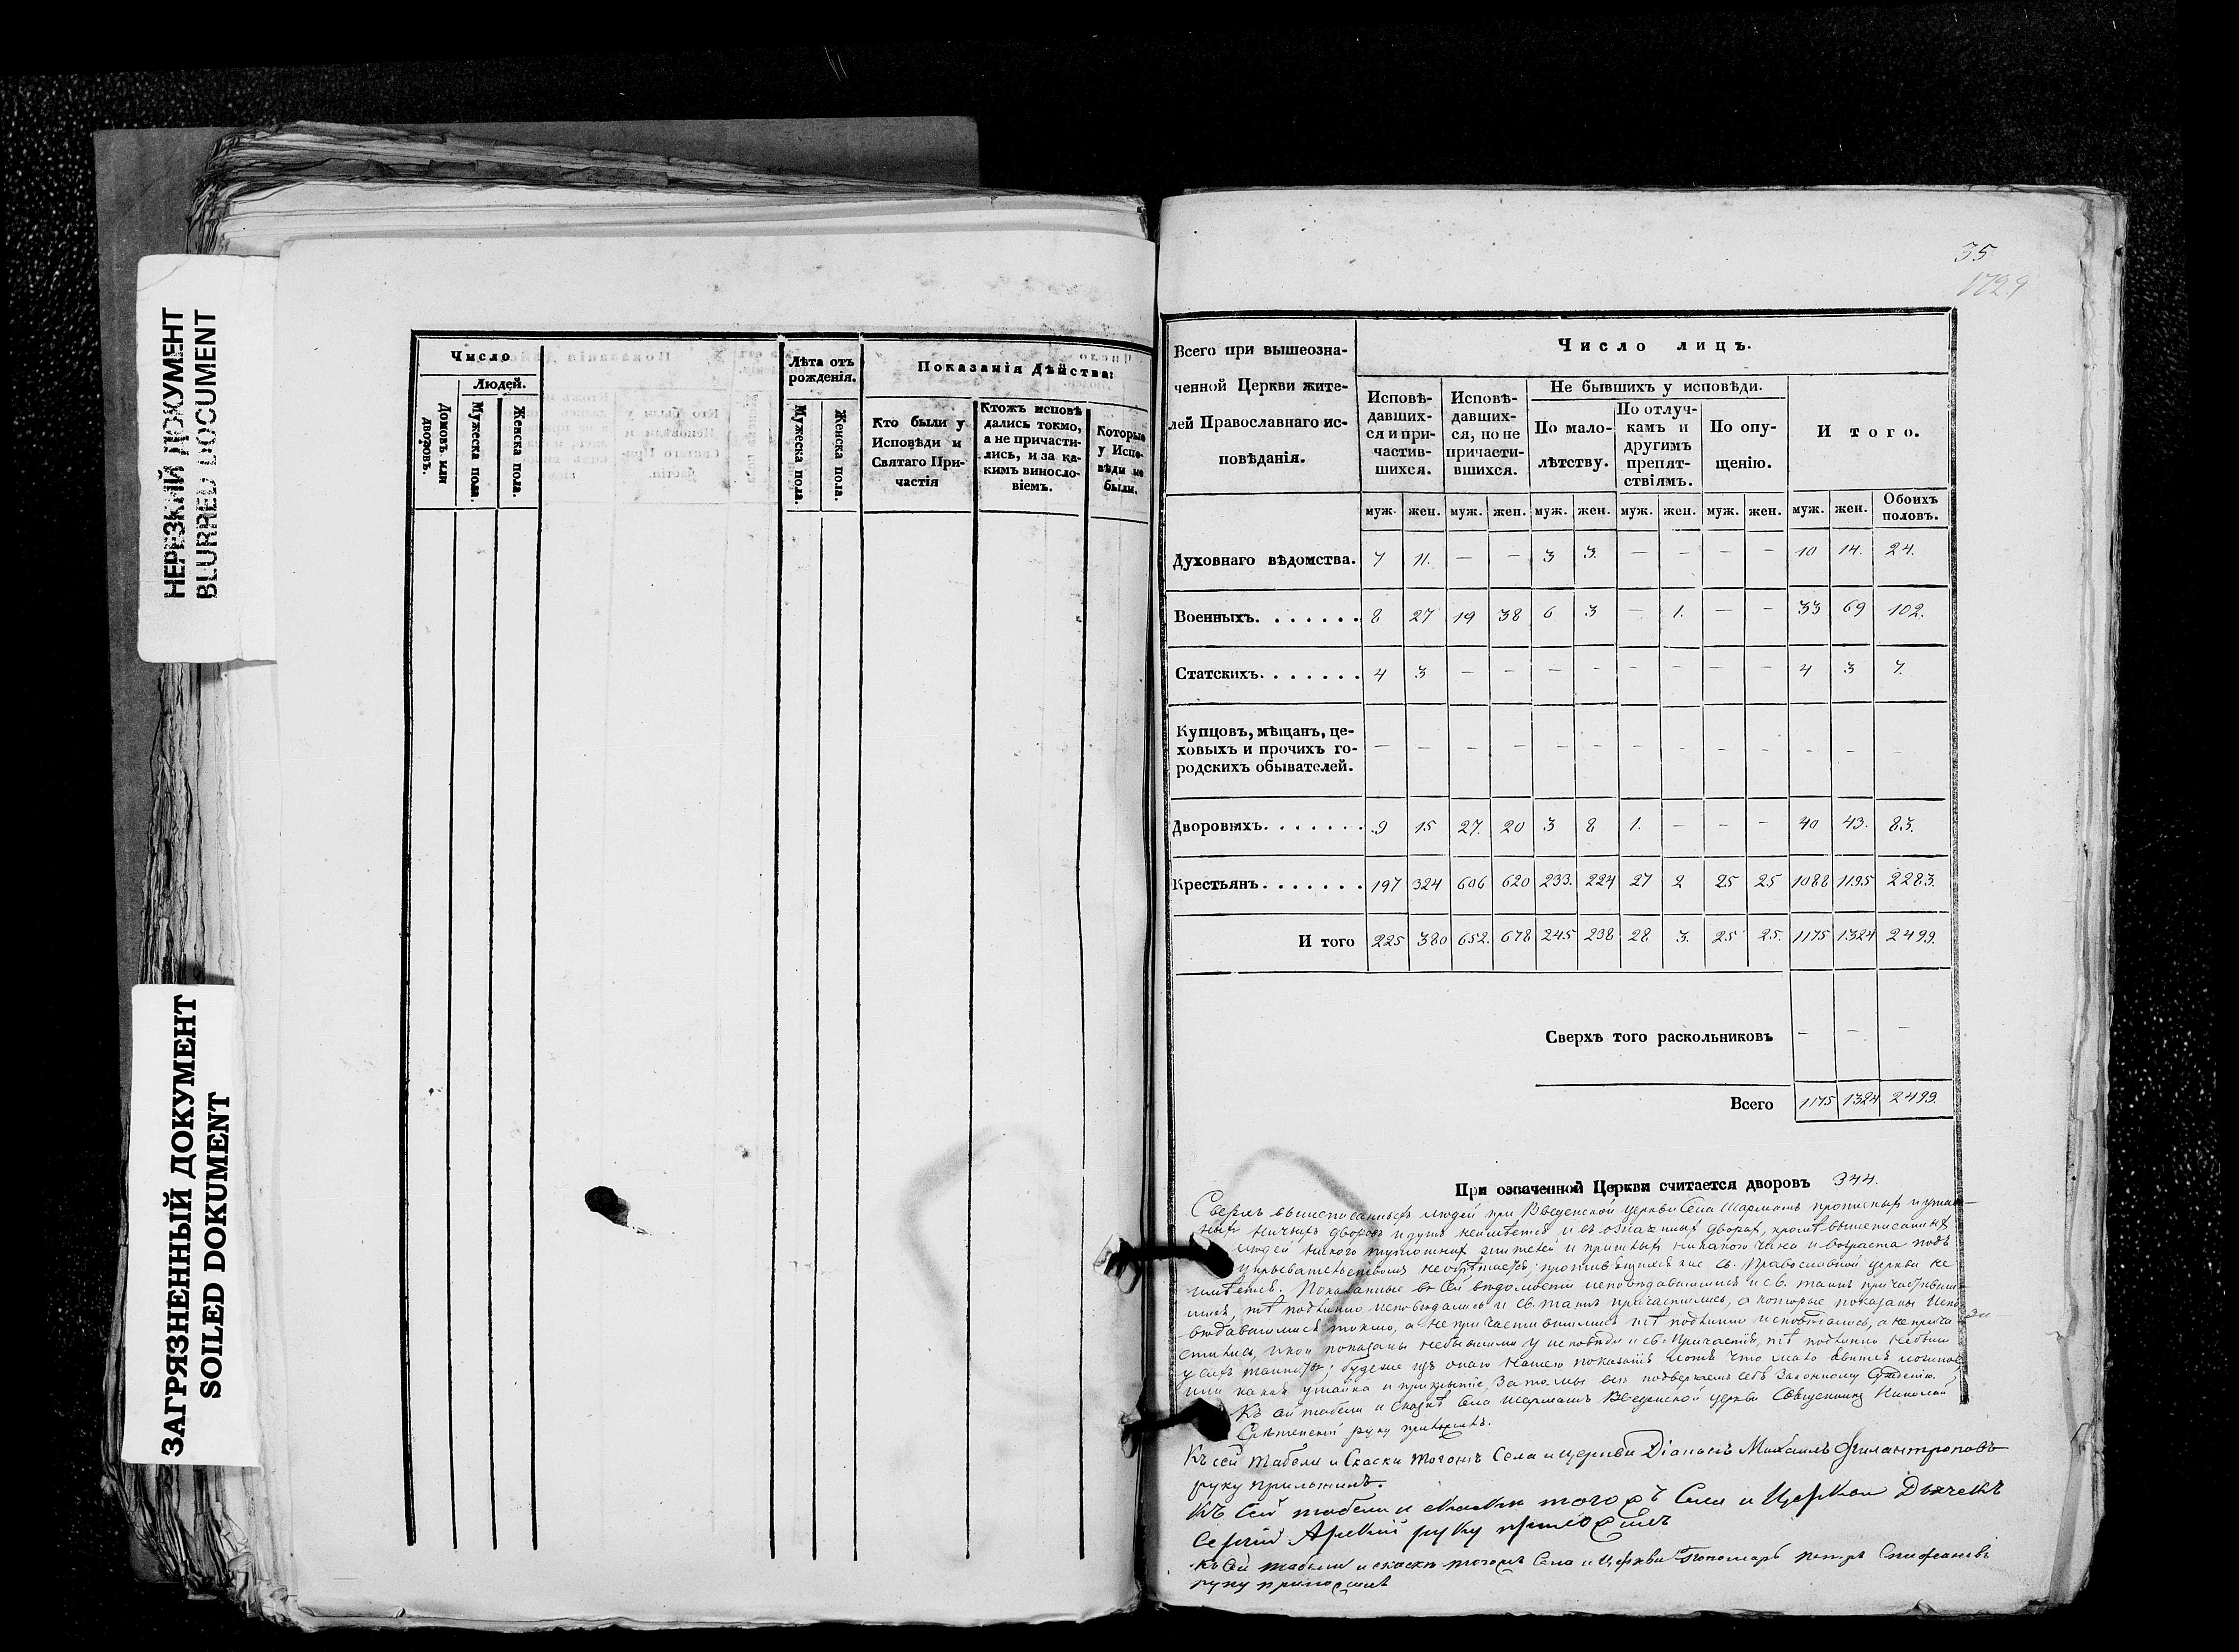 НЕРЕЗКИЙ ДОКУМЕНТ
BLURRED DOCUMENT
ЗАГРЯЗНЕННЫЙ ДОКУМЕНТ
SOILED DOKUMENT
Число
Людей.
Домовъ или дворовъ.
Мужеска пола.
Женска пола.
Лѣта отъ рожденія.
Мужеска пола.
Женска пола.
Показанія Дѣйства:
Кто были у Исповѣди и Святаго Причастія
Ктожъ исповѣдались токмо, а не причастились, и за какимъ винословіемъ.
Которые у Исповѣди не были.
35
1729
Всего при вышеозначенной Церкви жителей Православнаго исповѣданія.
Число лицъ.
Исповѣдавшихся и причастившихся.
Исповѣдавшихся, но не причастившихся.
Не бывшихъ у исповѣди.
По малолѣтству.
По отлучкамъ и другимъ препятствіямъ.
По опущенію.
И того.
муж. жен. муж. жен. муж. жен. муж. жен. муж. жен. муж. жен. Обоихъ половъ.
Духовнаго вѣдомства. 7 11. — — 3 3. — — — — 10 14. 24.
Военныхъ. 8 27 19 38 6 3 — 1. — — 33 69 102.
Статскихъ. 4 3 — — — — — — — — 4 3 7.
Купцовъ, мѣщанъ, цеховыхъ и прочихъ городскихъ обывателей. — — — — — — — — — — — — —
Дворовыхъ. 9 15 27. 20 3 8 1. — — — 40 43. 83.
Крестьянъ. 197 324 606 620 233. 224 27 2 25 25 1088 1195 2283.
И того 225 380 652. 678 245 238 28 3. 25 25. 1175 1324 2499.
Сверхъ того раскольниковъ — — —
Всего 1175 1324 2499.
При означенной Церкви считается дворовъ 344.
Сверхъ вышеписанныхъ людей при Введенской церкви Села прописныхъ и
ныхъ ничьихъ дворовъ и душъ неимѣется, и въ означенныхъ дворахъ, кромѣ вышеписанныхъ
людей никого тутошнихъ жителей и пришлыхъ никакого чина и возраста подъ
укрывательствомъ св. Православной церкви не
имѣется. Показанные въ сей вѣдомости исповѣдавшимися и св. таинъ причастивши
мися, тѣ подлинно исповѣдались и св. таинъ причастились, а которые показаны испо
вѣдавшимися токмо, а непричастившимися тѣ подлинно исповѣдались, а неприча
стились, и кои показаны небывшими у исповѣди и св. Причастія, тѣ подлинно небыли
у сихъ таинствъ; буде же изъ онаго нашего показанія что
или какая утайка и прикрытіе, за то мы подвергаемъ себя законному сужденію.
Къ сей табели и сказкѣ села Введенской церкви Священникъ Николай
руку приложилъ.
Къ сей табели и Скаски тогожъ Села и церкви Діаконъ Михаилъ Филантроповъ
руку приложилъ.
Къ сей табели и скаски тогожъ Села и Церкви Дьячекъ
Сергій руку приложилъ
Къ сей табели и скаски тогожъ Села и Церкви Пономарь Петръ
руку приложилъ